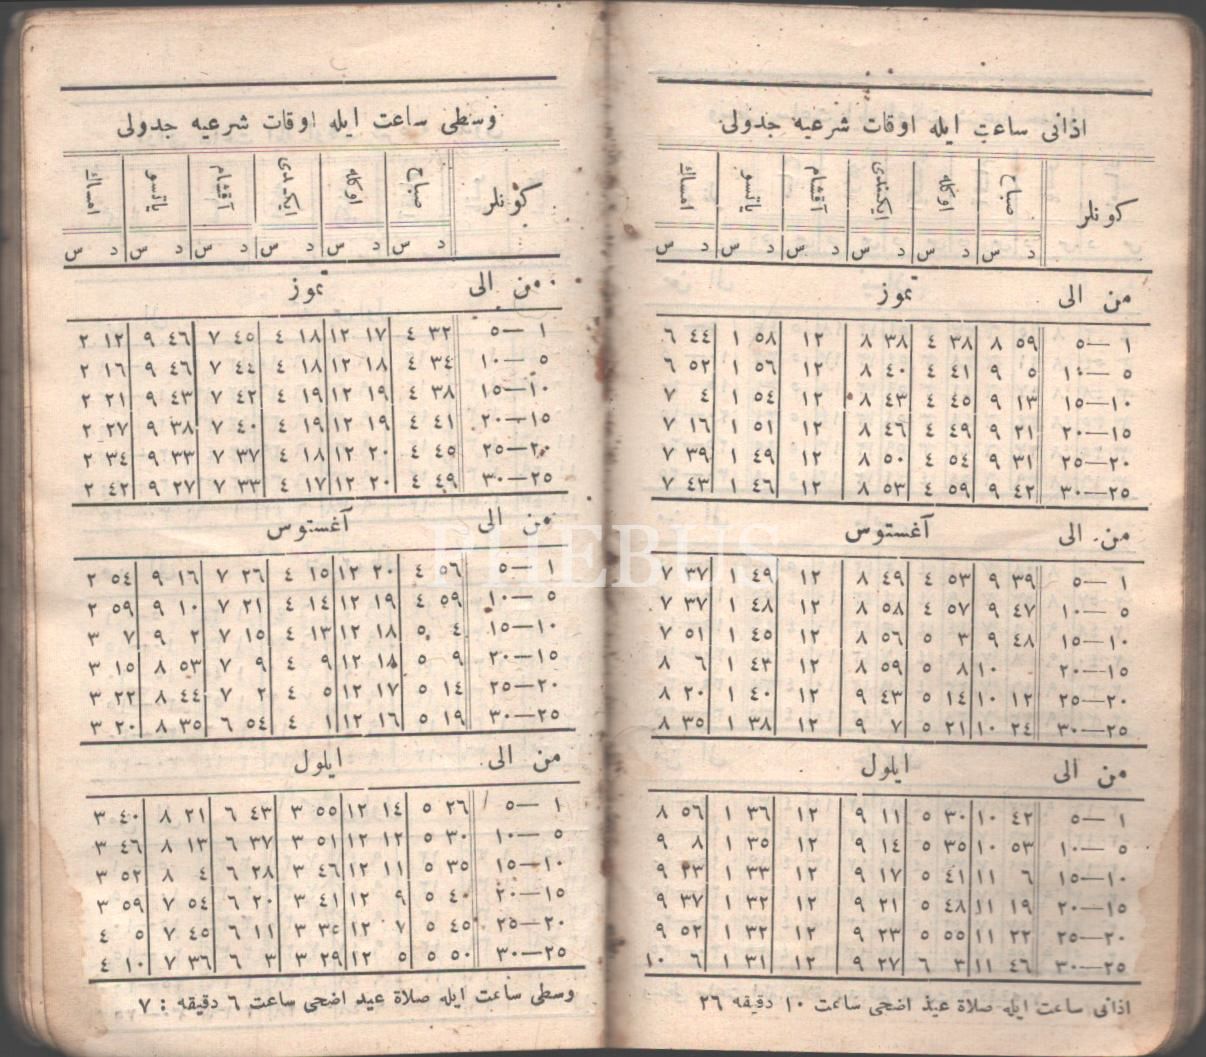 اذانى ساعت ايله اوقات شرعيه جدولى
كونلر صباح اوكله ايكندى آقشام ياتسو امساك
د س د س د س د س د س د س
من الى تموز
١—٥ ٥٩ ٨ ٣٨ ٤ ٣٨ ٨ ١٢ ٥٨ ١ ٤٤ ٦
٥—١٠ ٥ ٩ ٤١ ٤ ٤٠ ٨ ١٢ ٥٦ ١ ٥٢ ٦
١٠—١٥ ١٣ ٩ ٤٥ ٤ ٤٣ ٨ ١٢ ٥٤ ١ ٤ ٧
١٥—٢٠ ٢١ ٩ ٤٩ ٤ ٤٦ ٨ ١٢ ٥١ ١ ١٦ ٧
٢٠—٢٥ ٣١ ٩ ٥٤ ٤ ٥٠ ٨ ١٢ ٤٩ ١ ٣٩ ٧
٢٥—٣٠ ٤٢ ٩ ٥٩ ٤ ٥٣ ٨ ١٢ ٤٦ ١ ٤٣ ٧
من الى آغستوس
١—٥ ٣٩ ٩ ٥٣ ٤ ٤٩ ٨ ١٢ ٤٩ ١ ٣٧ ٧
٥—١٠ ٤٧ ٩ ٥٧ ٤ ٥٨ ٨ ١٢ ٤٨ ١ ٣٧ ٧
١٠—١٥ ٤٨ ٩ ٣ ٥ ٥٦ ٨ ١٢ ٤٥ ١ ٥١ ٧
١٥—٢٠ ١٠ ٨ ٥ ٥٩ ٨ ١٢ ٤٣ ١ ٦ ٨
٢٠—٢٥ ١٢ ١٠ ١٤ ٥ ٤٣ ٩ ١٢ ٤٠ ١ ٢٠ ٨
٢٥—٣٠ ٢٤ ١٠ ٢١ ٥ ٧ ٩ ١٢ ٣٨ ١ ٣٥ ٨
من الى ايلول
١—٥ ٤٢ ١٠ ٣٠ ٥ ١١ ٩ ١٢ ٣٦ ١ ٥٦ ٨
٥—١٠ ٥٣ ١٠ ٣٥ ٥ ١٤ ٩ ١٢ ٣٥ ١ ٨ ٩
١٠—١٥ ٦ ١١ ٤١ ٥ ١٧ ٩ ١٢ ٣٣ ١ ٢٣ ٩
١٥—٢٠ ١٩ ١١ ٤٨ ٥ ٢١ ٩ ١٢ ٣٢ ١ ٣٧ ٩
٢٠—٢٥ ٢٢ ١١ ٥٥ ٥ ٢٣ ٩ ١٢ ٣٢ ١ ٥٢ ٩
٢٥—٣٠ ٤٦ ١١ ٣ ٦ ٢٧ ٩ ١٢ ٣١ ١ ٦ ١٠
اذانى ساعت ايله صلاة عيد اضحى ساعت ١٠ دقيقه ٢٦
وسطى ساعت ايله اوقات شرعيه جدولى
كونلر صباح اوكله ايكندى آقشام ياتسو امساك
د س د س د س د س د س د س
من الى تموز
١—٥ ٣٢ ٤ ١٧ ١٢ ١٨ ٤ ٤٥ ٧ ٤٦ ٩ ١٢ ٢
٥—١٠ ٣٤ ٤ ١٨ ١٢ ١٨ ٤ ٤٤ ٧ ٤٦ ٩ ١٦ ٢
١٠—١٥ ٣٨ ٤ ١٩ ١٢ ١٩ ٤ ٤٢ ٧ ٤٣ ٩ ٢١ ٢
١٥—٢٠ ٤١ ٤ ١٩ ١٢ ١٩ ٤ ٤٠ ٧ ٣٨ ٩ ٢٧ ٢
٢٠—٢٥ ٤٥ ٤ ٢٠ ١٢ ١٨ ٤ ٣٧ ٧ ٣٣ ٩ ٣٤ ٢
٢٥—٣٠ ٤٩ ٤ ٢٠ ١٢ ١٧ ٤ ٣٣ ٧ ٢٧ ٩ ٤٢ ٢
من الى آغستوس
١—٥ ٥٦ ٤ ٢٠ ١٢ ١٥ ٤ ٢٦ ٧ ١٦ ٩ ٥٤ ٢
٥—١٠ ٥٩ ٤ ١٩ ١٢ ١٤ ٤ ٢١ ٧ ١٠ ٩ ٥٩ ٢
١٠—١٥ ٤ ٥ ١٨ ١٢ ١٣ ٤ ١٥ ٧ ٢ ٩ ٧ ٣
١٥—٢٠ ٩ ٥ ١٨ ١٢ ٩ ٤ ٩ ٧ ٥٣ ٨ ١٥ ٣
٢٠—٢٥ ١٤ ٥ ١٧ ١٢ ٥ ٤ ٢ ٧ ٤٤ ٨ ٢٢ ٣
٢٥—٣٠ ١٩ ٥ ١٦ ١٢ ١ ٤ ٥٤ ٦ ٣٥ ٨ ٢٠ ٣
من الى ايلول
١—٥ ٢٦ ٥ ١٤ ١٢ ٥٥ ٣ ٤٣ ٦ ٢١ ٨ ٤٠ ٣
٥—١٠ ٣٠ ٥ ١٢ ١٢ ٥١ ٣ ٣٧ ٦ ١٣ ٨ ٤٦ ٣
١٠—١٥ ٣٥ ٥ ١١ ١٢ ٤٦ ٣ ٢٨ ٦ ٤ ٨ ٥٢ ٣
١٥—٢٠ ٤٠ ٥ ٩ ١٢ ٤١ ٣ ٢٠ ٦ ٥٤ ٧ ٥٩ ٣
٢٠—٢٥ ٤٥ ٥ ٧ ١٢ ٣٥ ٣ ١١ ٦ ٤٥ ٧ ٥ ٤
٢٥—٣٠ ٥٠ ٥ ٥ ١٢ ٢٩ ٣ ٣ ٦ ٣٦ ٧ ١٠ ٤
وسطى ساعت ايله صلاة عيد اضحى ساعت ٦ دقيقه : ٧
PHEBUS